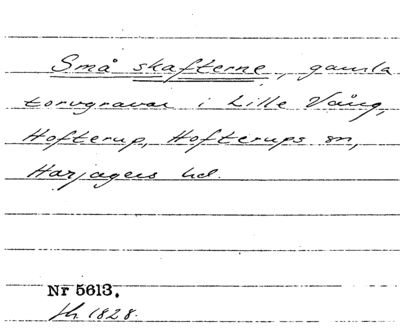 Små skafterne, gamla
torvgravar i Lille Vång,
Hofterup, Hofterups sn,
Harjagers hd.
Nr 5613.
1828.